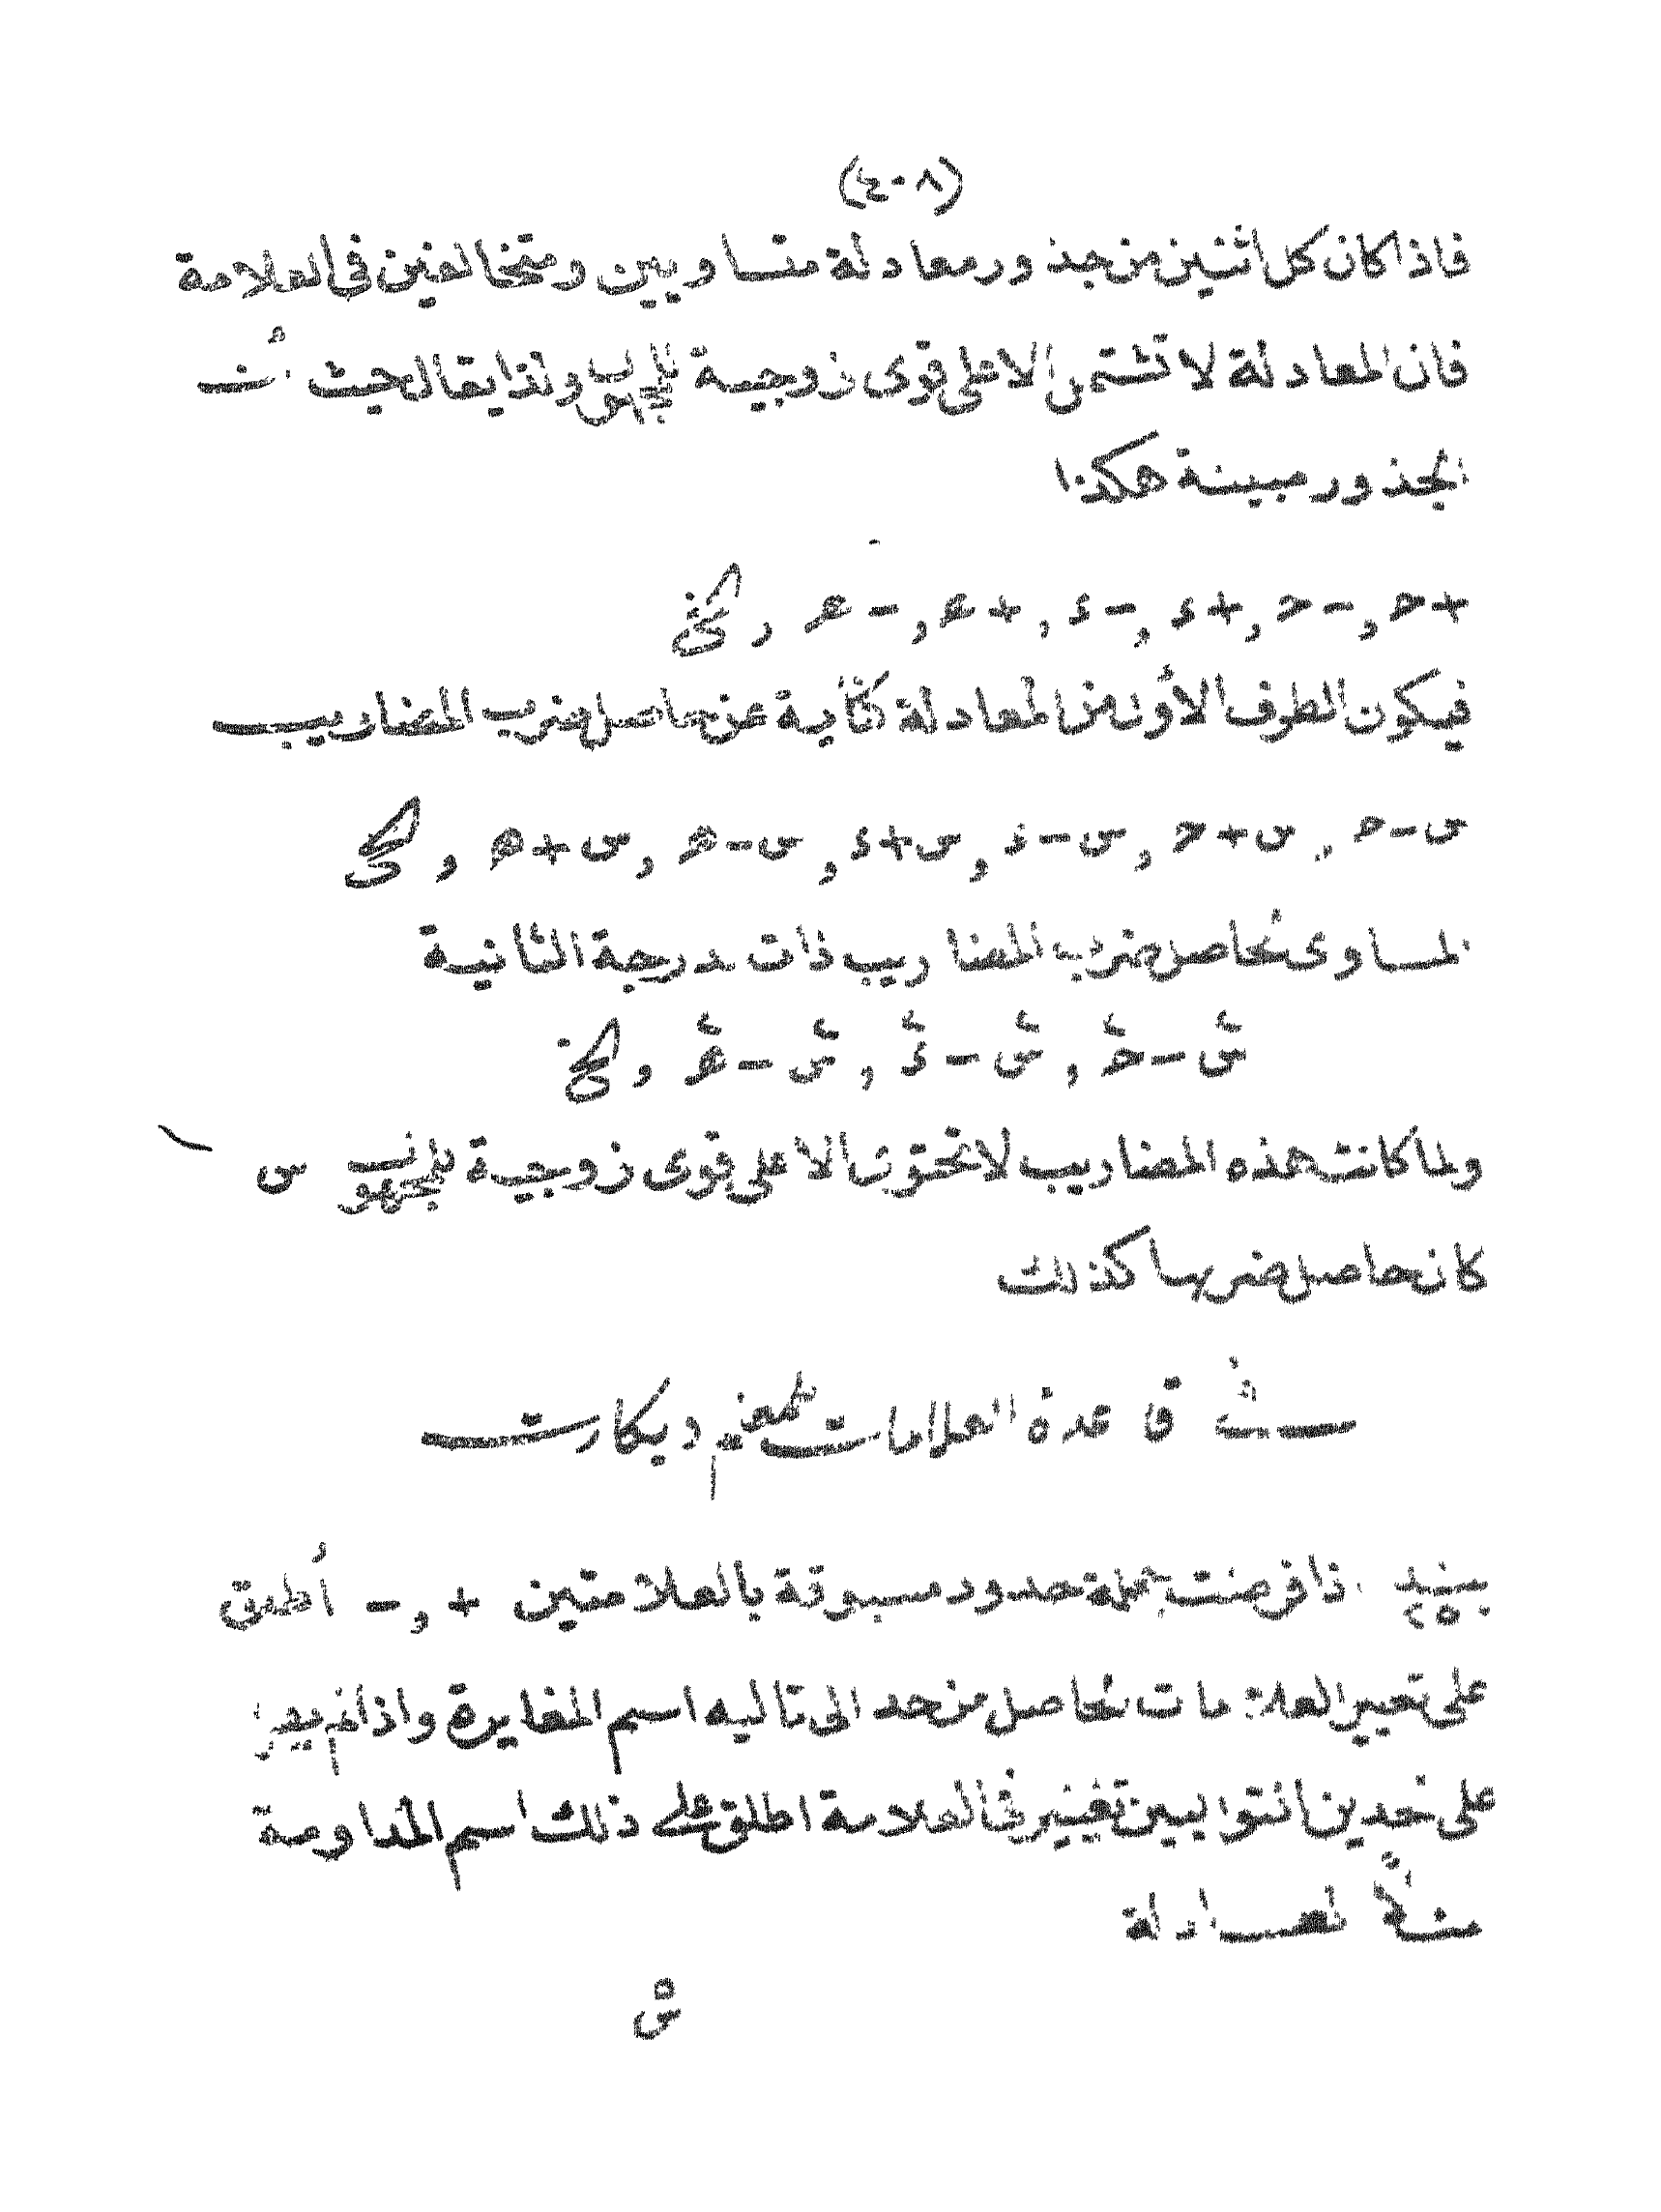 (٤٠٨)
فاذا كان كل اثنين من جذور معادلة متساويين ومتخالفين فى العلامة
فان المعادلة لا تشتمل الا على قوى زوجية للمجهول ولذا يقال حيث أن
الجذور مبينة هكذا
+ح و -ح و +ء و -ء و +ھ و -ھ و الخ
فيكون الطرف الأول من المعادلة كناية عن حاصل ضرب المضاريب
س-ح و س+ح و س-ء و س+ء و س-ھ و س+ھ و الخ
المساوى لحاصل ضرب المضاريب ذات الدرجة الثانية
س٢-ح٢ و س٢-ء٢ و س٢-ھ٢ و الخ
ولما كانت هذه المضاريب لا تحتوى الا على قوى زوجية للمجهول س
كان حاصل ضربها كذلك
قاعدة العلامات للمعلم ديكارت
بند اذا فرضت جملة حدود مسبوقة بالعلامتين + و - أطلق
٢٥٠
على تغيير العلامات الحاصل من حد الى تاليه اسم المغايرة واذا لم يعبر
على حدين متواليين تغيير فى العلامة اطلق على ذلك اسم المداومة
مثلاً لمعادلة
س٥